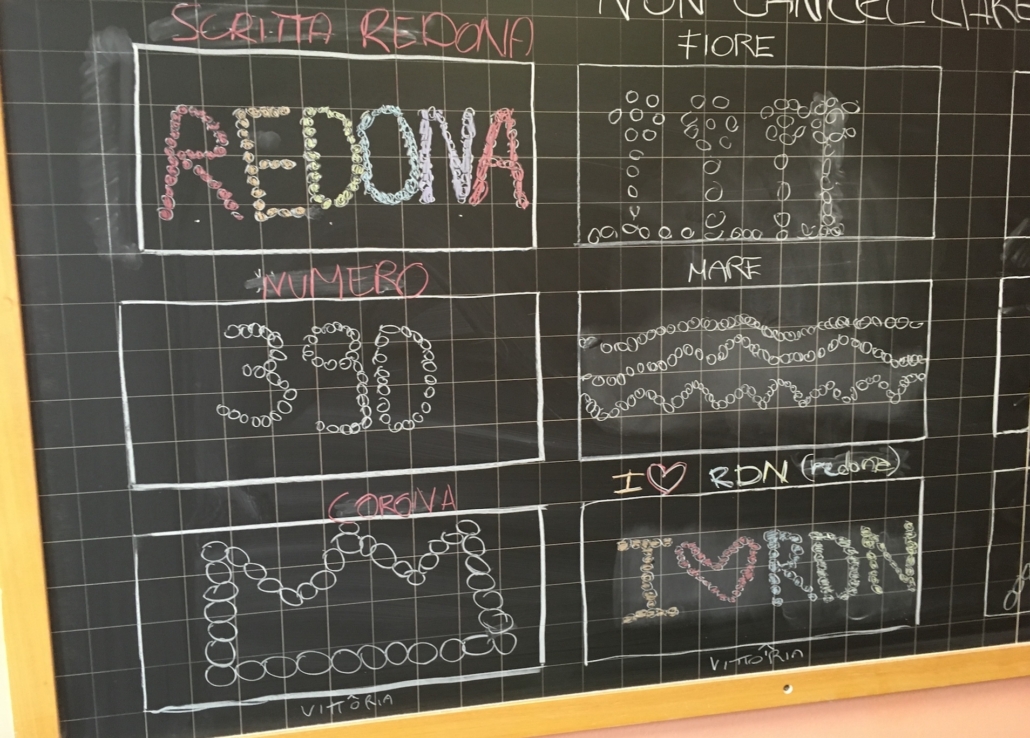 NON CANCELLARE
SCRITTA REDONA
FIORE
REDONA
NUMERO
MARE
390
CORONA
I ♡ RDN (redona)
I ♡ RDN
VITTORIA
VITTORIA